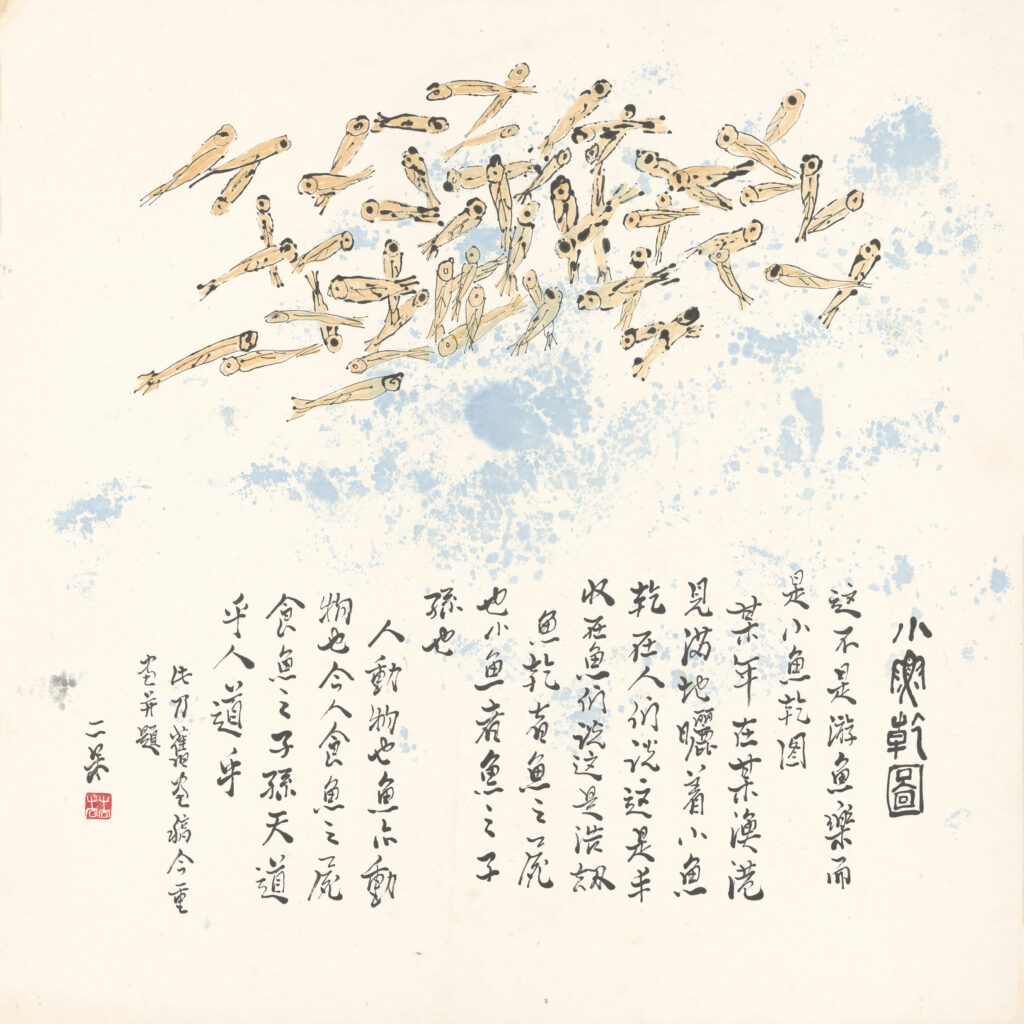 小魚乾圖
这不是游魚樂而
是小魚乾图
某年在某漁港
見满地曬着小魚
乾在人们说这是丰
收在魚们说这是浩刼
魚乾者魚之屍
也小魚者魚之子
孫也
人動物也魚亦動
物也今人食魚之屍
食魚之子孫天道
乎人道乎
此乃舊画稿今重
画并題
二呆